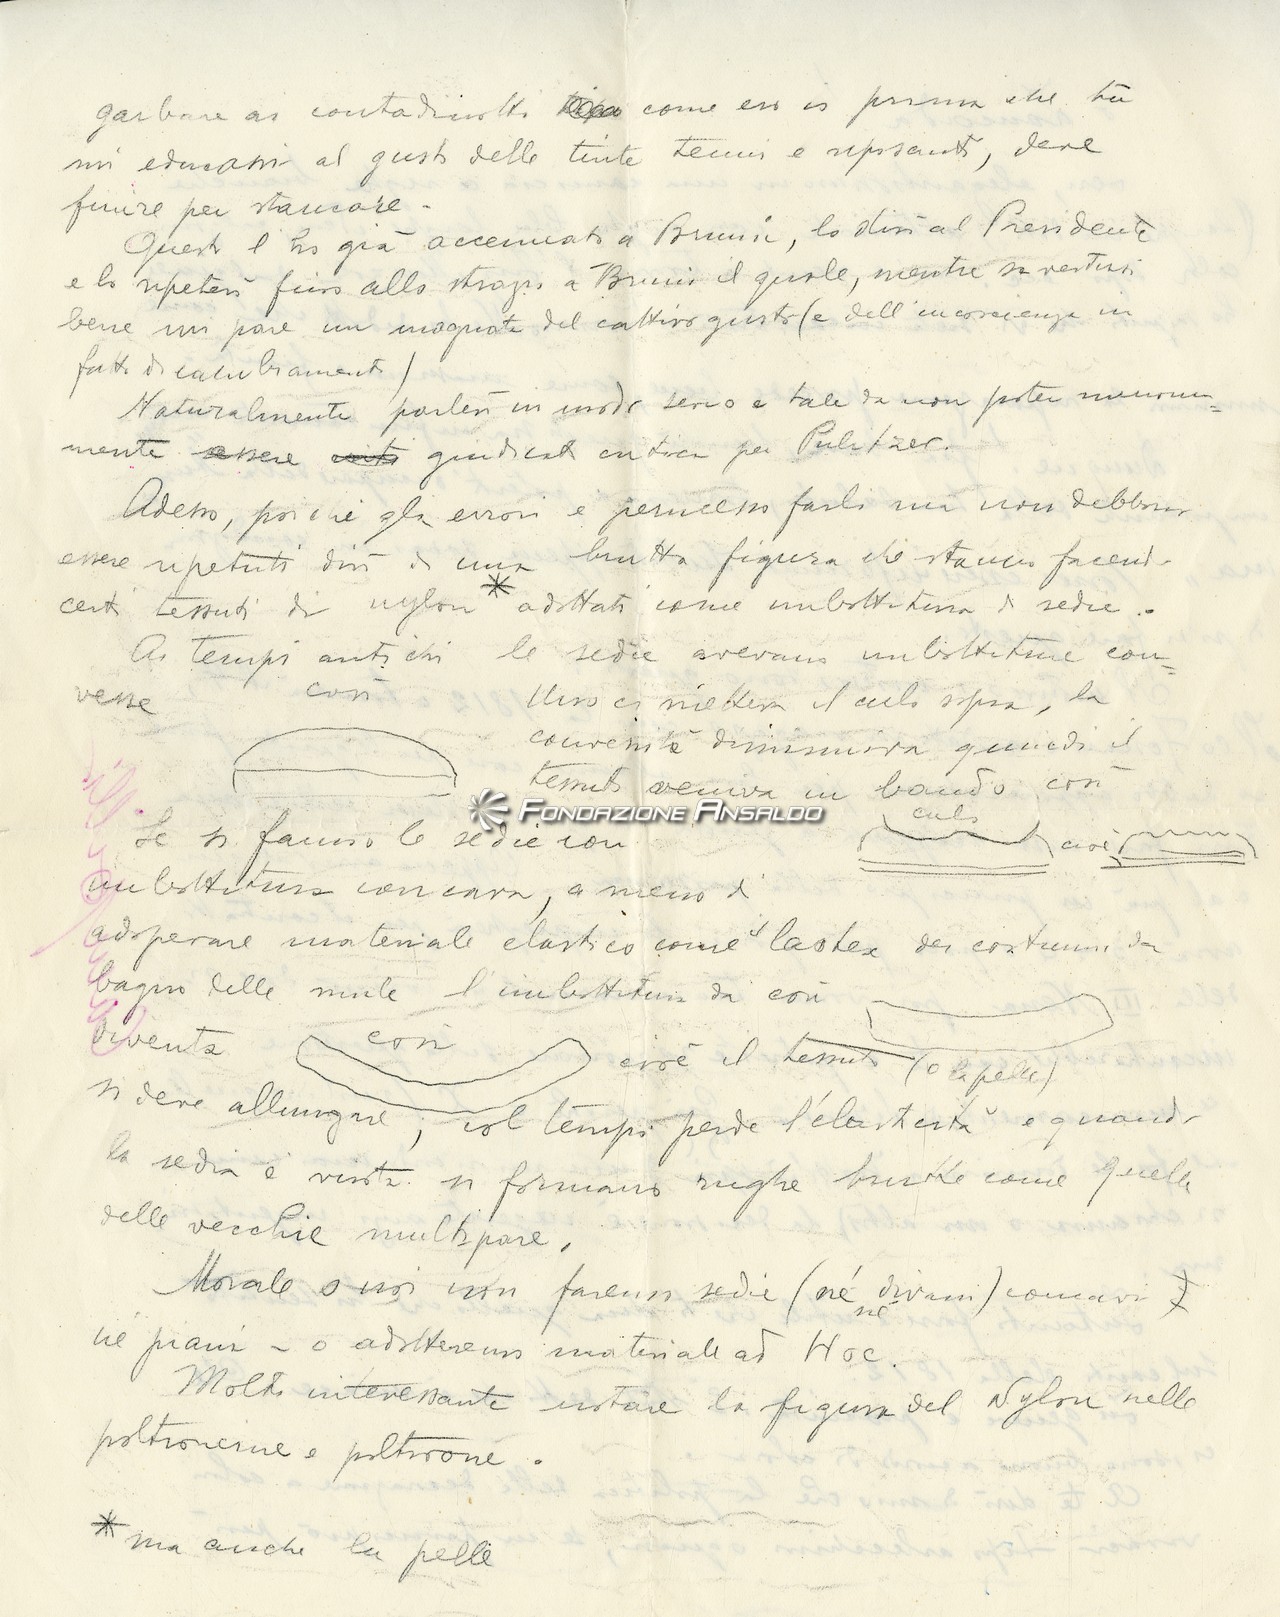 garbare ai contadinotti come ero io prima che tu
mi educassi al gusto delle tinte tenui e riposanti, deve
finire per stancare.
Questo l'ho già accennato a Brunin, lo dirò al Presidente
e lo ripeterò fino allo strazio a Brunin il quale, mentre sa vestirsi
bene mi pare un magnate del cattivo gusto (e dell'incoscienza in
fatto di)
Naturalmente parlerò in modo serio e tale da non poter
mente essere giudicato critica per Pulitzer.
Adesso, poiché gli errori è permesso farli ma non debbono
essere ripetuti dirò di una brutta figura che stanno facendo
certi tessuti di nylon * adottati come imbottitura di sedie.
Ai tempi antichi le sedie avevano imbottiture con=
vesse così Uno ci metteva il culo sopra, la
convessità diminuiva quindi il
tessuto veniva in bando così
culo
cioè
Se si fanno le sedie con
imbottitura concava, a meno di
adoperare materiale elastico come il lastex dei costumi da
bagno delle mule l'imbottitura da così
diventa così cioè il tessuto (o la pelle)
si deve allungare, col tempo perde l'elasticità e quando
la sedia è vuota si formano rughe brutte come quelle
delle vecchie multipare.
Morale o noi non faremo sedie (né divani) concavi
né
né piani - o adotteremo materiale ad Hoc.
Molto interessante notare la figura del Nylon nelle
poltroncine e poltrone.
* ma anche la pelle
FONDAZIONE ANSALDO